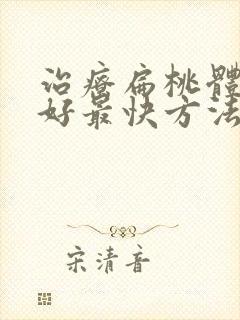 治療扁桃體
好最快方法
宋清音